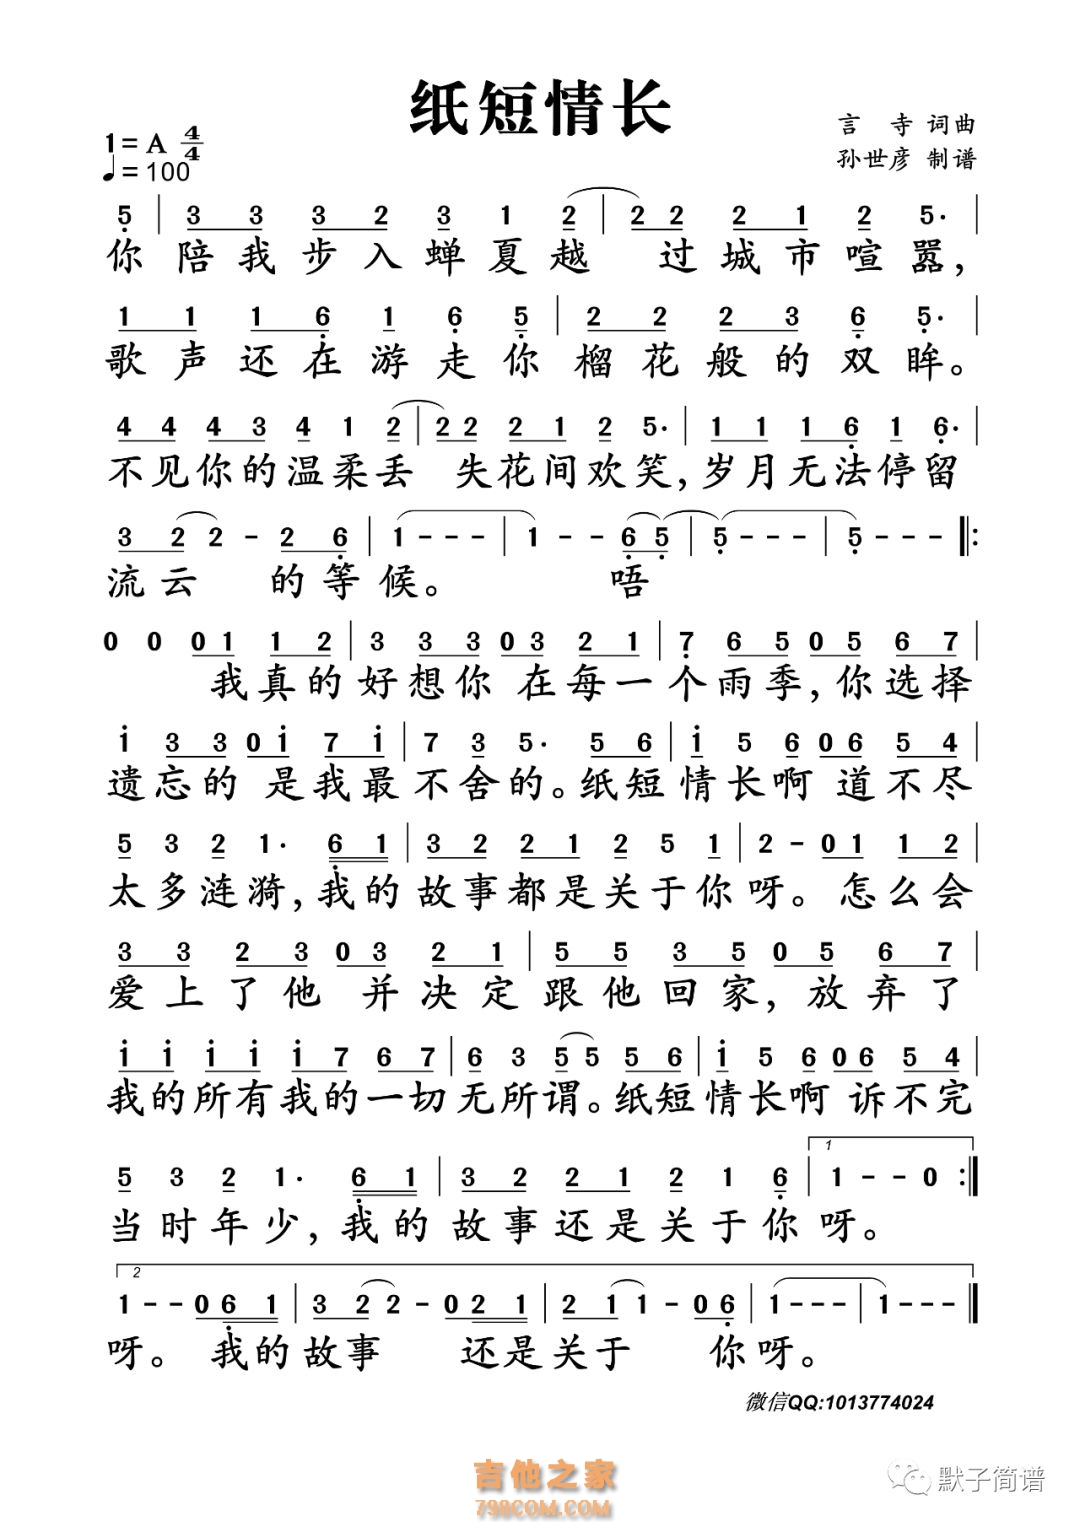 纸短情长
1=A 4/4
♩=100
言 寺 词曲
孙世彦 制谱
5 | 3 3 3 2 3 1 2 | 2 2 2 1 2 5· |
你陪我步入蝉夏越 过城市喧嚣,
1 1 1 6 1 6 5 | 2 2 2 3 6 5· |
歌声还在游走你榴花般的双眸。
4 4 4 3 4 1 2 | 2 2 2 1 2 5· | 1 1 1 6 1 6· |
不见你的温柔丢 失花间欢笑,岁月无法停留
3 2 2 - 2 6 | 1 - - - | 1 - - 6 5 | 5 - - - | 5 - - - ‖:
流云 的等候。 唔
0 0 0 1 1 2 | 3 3 3 0 3 2 1 | 7 6 5 0 5 6 7 |
我真的好想你 在每一个雨季,你选择
1 3 3 0 1 7 1 | 7 3 5· 5 6 | 1 5 6 0 6 5 4 |
遗忘的 是我最不舍的。纸短情长啊 道不尽
5 3 2 1· 6 1 | 3 2 2 1 2 5 1 | 2 - 0 1 1 2 |
太多涟漪,我的故事都是关于你呀。怎么会
3 3 2 3 0 3 2 1 | 5 5 3 5 0 5 6 7 |
爱上了他 并决定跟他回家,放弃了
1 1 1 1 1 7 6 7 | 6 3 5 5 5 6 | 1 5 6 0 6 5 4 |
我的所有我的一切无所谓。纸短情长啊 诉不完
1
5 3 2 1· 6 1 | 3 2 2 1 2 1 6 | 1 - - 0 :‖
当时年少,我的故事还是关于你呀。
2
1 - - 0 6 1 | 3 2 2 - 0 2 1 | 2 1 1 - 0 6 | 1 - - - | 1 - - - ‖
呀。 我的故事 还是关于 你呀。
微信QQ:1013774024
吉他之家
798COM.COM
默子简谱